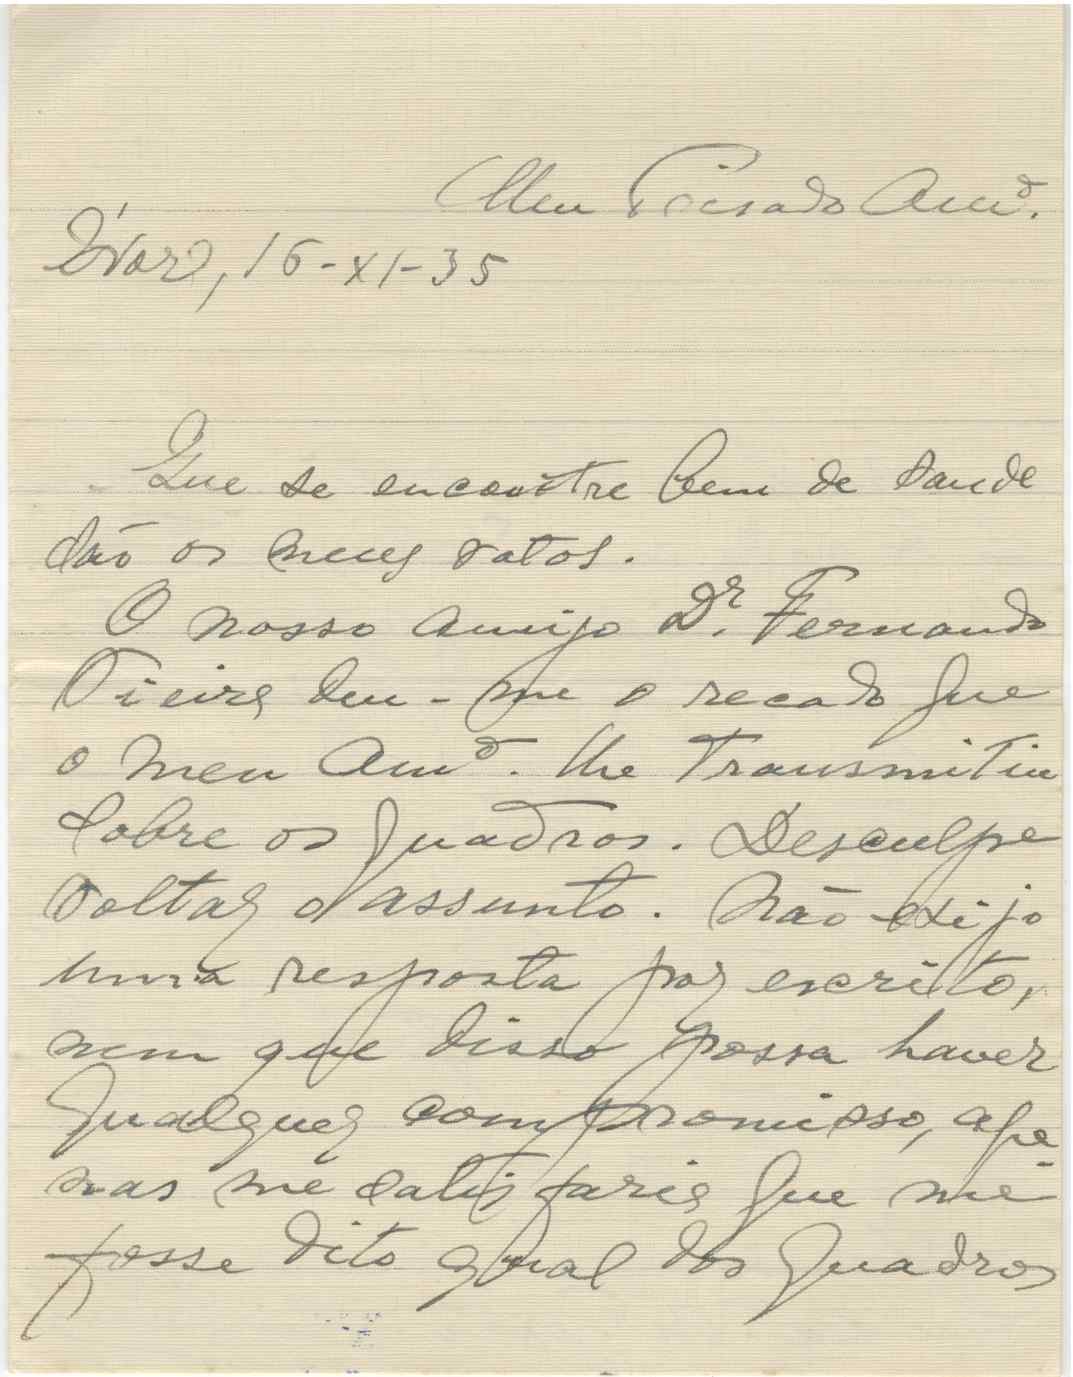 Meu Prezado Amº.
Ovar, 16-XI-35
Que se encontre bem de saude
são os meus votos.
O nosso amigo Dr. Fernando
Vieira deu-me o recado que
o meu Amº. lhe transmitiu
sobre os quadros. Desculpe
voltar o assunto. Não exijo
uma resposta por escrito,
nem que disso possa haver
qualquer compromisso, ape-
nas me satisfaria que me
fosse dito qual dos quadros